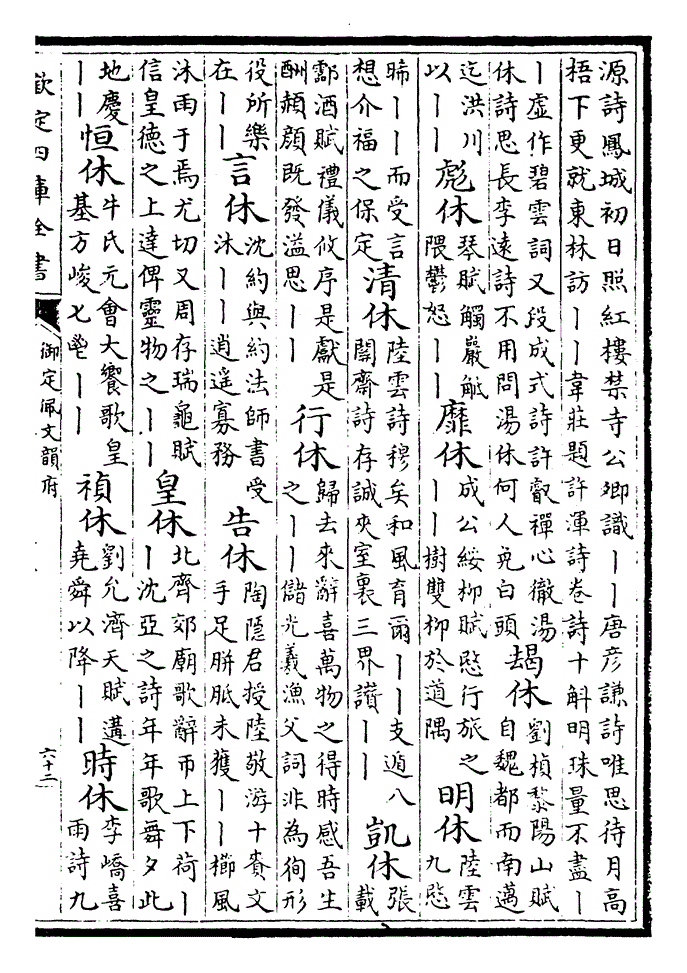 源詩鳳城初日照紅樓禁寺公卿識丨丨唐彦謙詩唯思待月高
梧下更就東林訪丨丨韋莊題許渾詩卷詩十斛明珠量不盡丨
丨虛作碧雲詞又段成式詩許叡禪心徹湯
休詩思長李遠詩不用問湯休何人免白頭
朅休
劉楨黎陽山賦
自魏都而南邁
迄洪川
以丨丨
彪休
琴賦觸巖觝
隈鬱怒丨丨
靡休
成公綏柳賦愍行旅之
丨丨樹雙柳於道隅
明休
陸雲
九愍
晞丨丨而受言
想介福之保定
清休
陸雲詩穆矣和風育爾丨丨支遁八
關齋詩存誠夾室裏三界讚丨丨
凱休
張
載
酃酒賦禮儀攸序是獻是
酬頳顔既發溢思丨丨
行休
歸去來辭喜萬物之得時感吾生
之丨丨儲光羲漁父詞非為徇形
役所樂
在丨丨
言休
沈約與約法師書受
沐丨丨逍遥寡務
告休
陶隱君授陸敬游十賚文
手足胼胝未獲丨丨櫛風
沐雨于焉尤切又周存瑞龜賦
信皇德之上達俾靈物之丨丨
皇休
北齊郊廟歌辭帀上下荷丨
丨沈亞之詩年年歌舞夕此
地慶
丨丨
恒休
牛氏元會大饗歌皇
基方峻七鬯丨丨
禎休
劉允濟天賦遘
堯舜以降丨丨
時休
李嶠喜
雨詩九
欽定四庫全書
御定佩文韻府
六十二